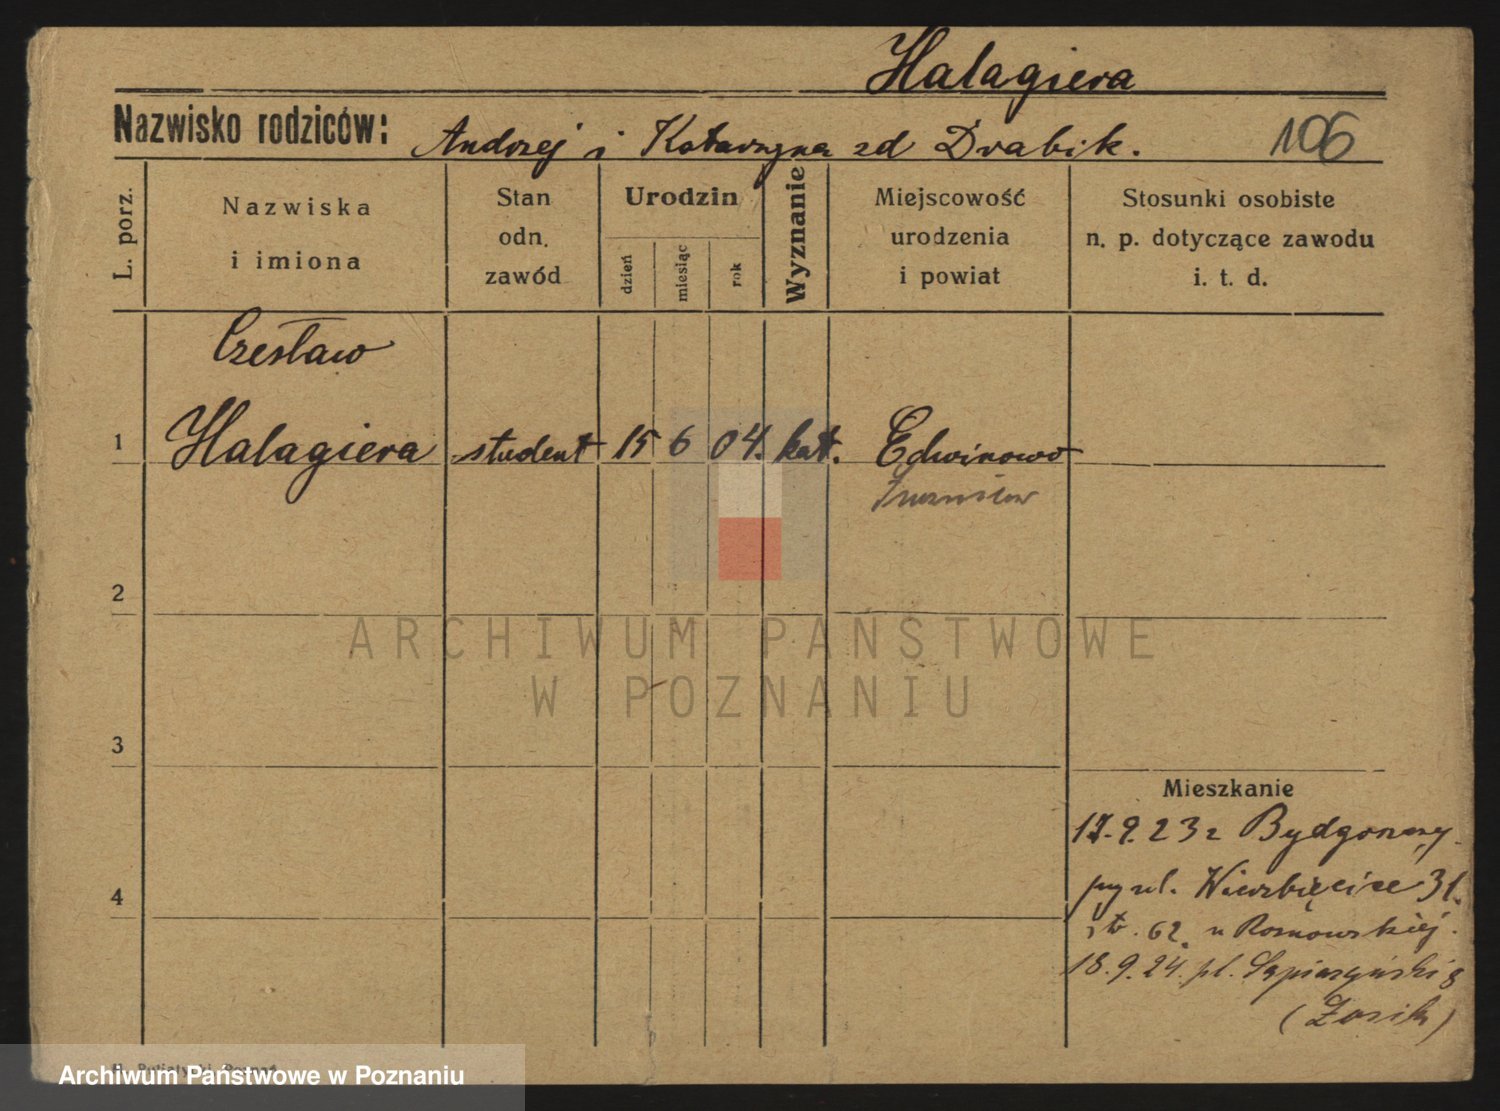 Halagiera
Nazwisko rodziców: Andrzej i Katarzyna zd Drabik. 106
L. porz.
Nazwiska i imiona
Stan odn. zawód
Urodzin
dzień miesiąc rok
Wyznanie
Miejscowość urodzenia i powiat
Stosunki osobiste n. p. dotyczące zawodu i. t. d.
Czesław
1 Halagiera student 15 6 04. kat. Edwinowo
2
ARCHIWUM PAŃSTWOWE
W POZNANIU
3
Mieszkanie
17.9.23 z Bydgoszczy.
ul. Wierzbięcice 31.
62 u Rosnowskiej.
18.9.24. pl. Sapieżyński 8
4
(Zosik)
Archiwum Państwowe w Poznaniu